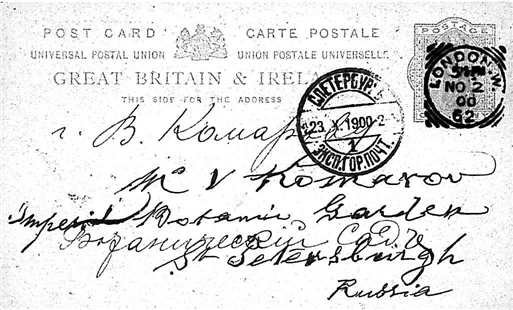 POST CARD CARTE POSTALE
UNIVERSAL POSTAL UNION UNION POSTALE UNIVERSELLE
GREAT BRITAIN & IREL
THIS SIDE FOR THE ADDRESS
POSTAGE
LONDON. W
NO 2
00
62
С.ПЕТЕРБУР
23.X.1900-2
1
ЭКСП.ГОР.ПОЧТ.
г. В. Комарову
Mr V Komarov
Imperial Botanic Garden
Ботанический Садъ
St Petersburgh
Russia